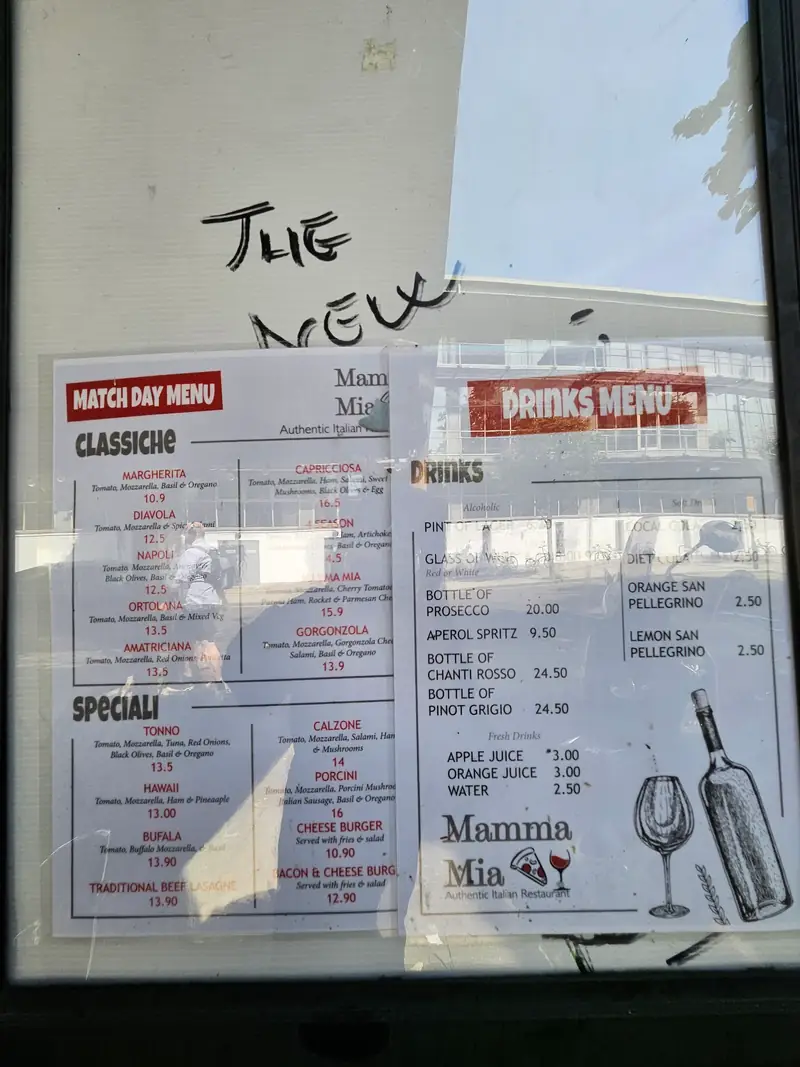 THE
NEW
MATCH DAY MENU
Mam
Mia
Authentic Italian
CLASSICHE
MARGHERITA
Tomato, Mozzarella, Basil & Oregano
10.9
DIAVOLA
Tomato, Mozzarella &
12.5
NAPOLI
Black Olives,
12.5
ORTOLANA
Tomato, Mozzarella, Basil & Mixed Veg
13.5
AMATRICIANA
Tomato, Mozzarella, Red Onions,
13.5
CAPRICCIOSA
Tomato, Mozzarella, Ham, Salami, Sweet
Mushrooms, Black Olives & Egg
16.5
Artichoke
Basil & Oregano
4.5
MA MIA
Mozzarella, Cherry Tomato
Ham, Rocket & Parmesan Che
15.9
GORGONZOLA
Tomato, Mozzarella, Gorgonzola Che
Salami, Basil & Oregano
13.9
SPECIALI
TONNO
Tomato, Mozzarella, Tuna, Red Onions,
Black Olives, Basil & Oregano
13.5
HAWAII
Tomato, Mozzarella, Ham & Pineaaple
13.00
BUFALA
Tomato, Buffalo Mozzarella, &
13.90
TRADITIONAL BEEF LASAGNE
13.90
CALZONE
Tomato, Mozzarella, Salami, Ham
& Mushrooms
14
PORCINI
Tomato, Mozzarella, Porcini Mushroo
Italian Sausage, Basil & Oregano
16
CHEESE BURGER
Served with fries & salad
10.90
BACON & CHEESE BURG
Served with fries & salad
12.90
DRINKS MENU
DRINKS
Alcoholic
PINT OF LAGER
GLASS OF
Red or White
BOTTLE OF
PROSECCO 20.00
APEROL SPRITZ 9.50
BOTTLE OF
CHANTI ROSSO 24.50
BOTTLE OF
PINOT GRIGIO 24.50
COLA
DIET COLA 2.50
ORANGE SAN
PELLEGRINO 2.50
LEMON SAN
PELLEGRINO 2.50
Fresh Drinks
APPLE JUICE 3.00
ORANGE JUICE 3.00
WATER 2.50
Mamma
Mia
Authentic Italian Restaurant